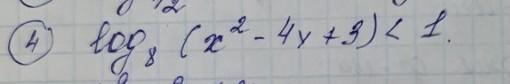 ④ log₈ (x² - 4x + 3) < 1.